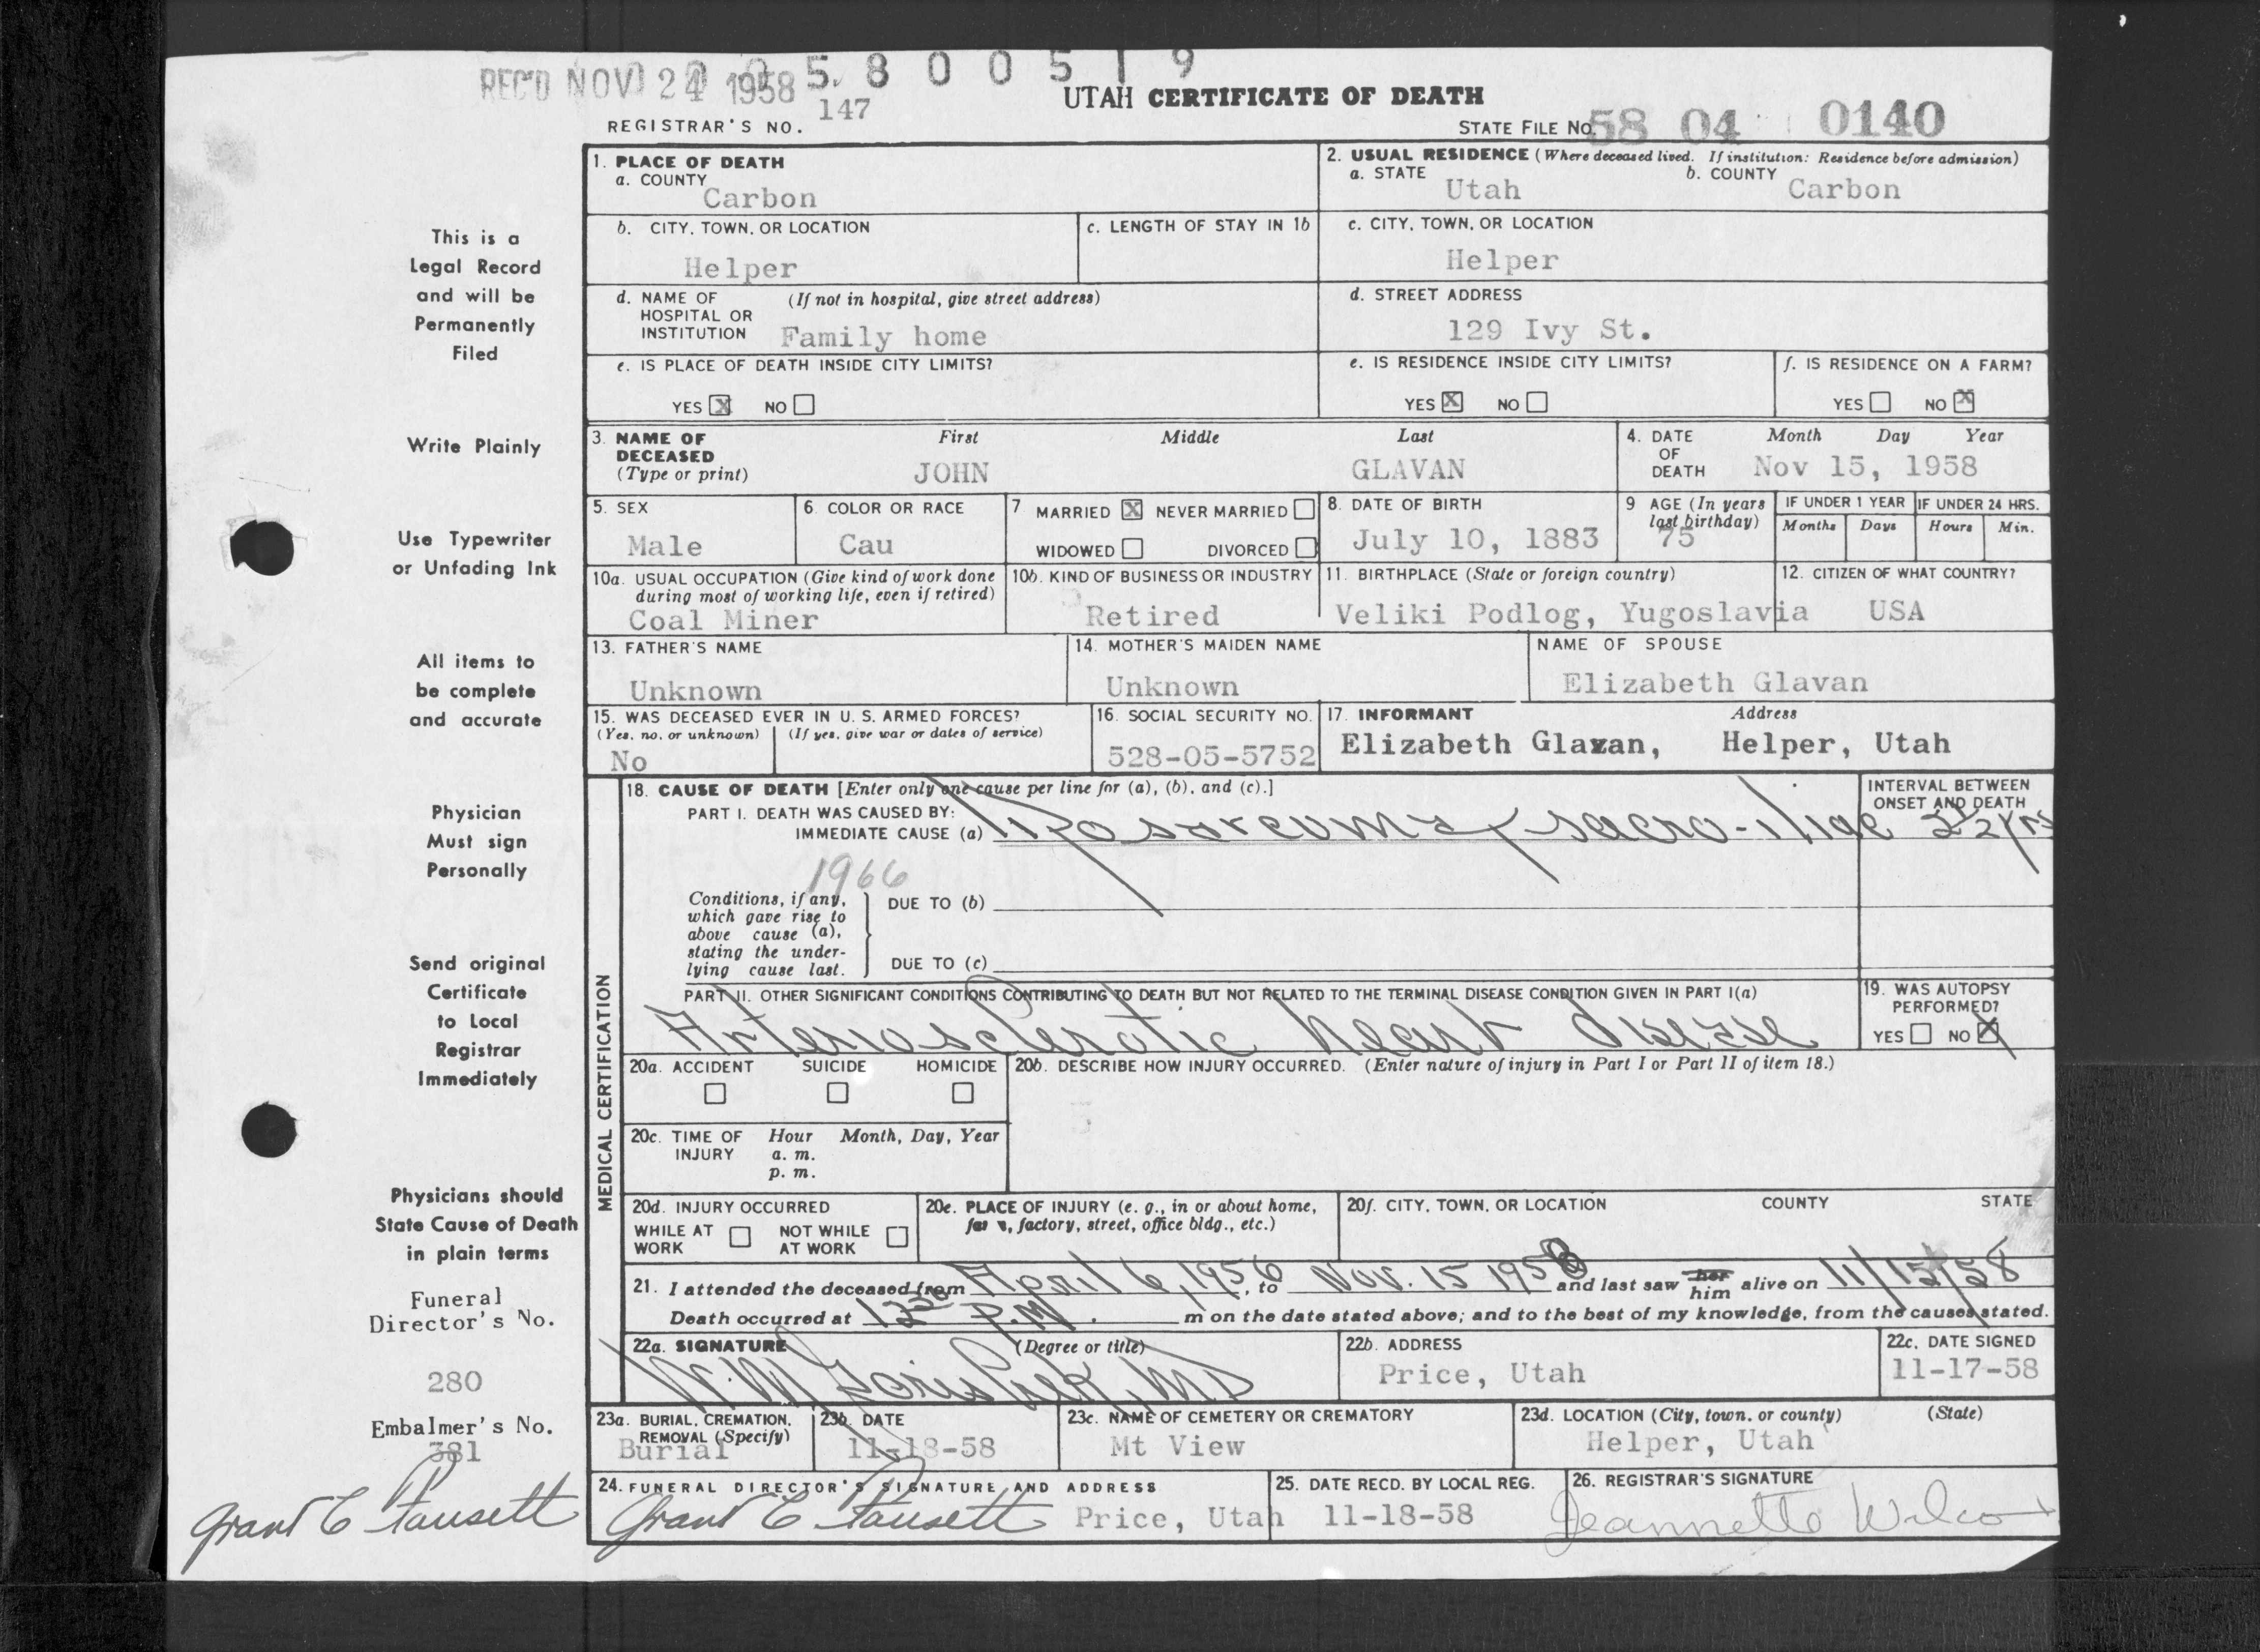 REC'D NOV 24 1958
5 8 0 0 5 1 9
147
UTAH CERTIFICATE OF DEATH
REGISTRAR'S NO.
STATE FILE NO. 58 04 0140
1. PLACE OF DEATH
a. COUNTY
Carbon
2. USUAL RESIDENCE (Where deceased lived. If institution: Residence before admission)
a. STATE Utah b. COUNTY Carbon
b. CITY, TOWN, OR LOCATION
Helper
c. LENGTH OF STAY IN 1b
c. CITY, TOWN, OR LOCATION
Helper
d. NAME OF HOSPITAL OR INSTITUTION (If not in hospital, give street address)
Family home
d. STREET ADDRESS
129 Ivy St.
e. IS PLACE OF DEATH INSIDE CITY LIMITS?
YES X NO
e. IS RESIDENCE INSIDE CITY LIMITS?
YES X NO
f. IS RESIDENCE ON A FARM?
YES NO X
3. NAME OF DECEASED (Type or print)
First Middle Last
JOHN GLAVAN
4. DATE OF DEATH Month Day Year
Nov 15, 1958
5. SEX
Male
6. COLOR OR RACE
Cau
7 MARRIED X NEVER MARRIED
WIDOWED DIVORCED
8. DATE OF BIRTH
July 10, 1883
9 AGE (In years last birthday)
75
IF UNDER 1 YEAR
Months Days
IF UNDER 24 HRS.
Hours Min.
10a. USUAL OCCUPATION (Give kind of work done during most of working life, even if retired)
Coal Miner
10b. KIND OF BUSINESS OR INDUSTRY
Retired
11. BIRTHPLACE (State or foreign country)
Veliki Podlog, Yugoslavia
12. CITIZEN OF WHAT COUNTRY?
USA
13. FATHER'S NAME
Unknown
14. MOTHER'S MAIDEN NAME
Unknown
NAME OF SPOUSE
Elizabeth Glavan
15. WAS DECEASED EVER IN U. S. ARMED FORCES?
(Yes, no, or unknown) (If yes, give war or dates of service)
No
16. SOCIAL SECURITY NO.
528-05-5752
17. INFORMANT Address
Elizabeth Glavan, Helper, Utah
MEDICAL CERTIFICATION
18. CAUSE OF DEATH [Enter only one cause per line for (a), (b), and (c).]
PART I. DEATH WAS CAUSED BY:
IMMEDIATE CAUSE (a) Liposarcoma, sacro-iliac
INTERVAL BETWEEN ONSET AND DEATH
2 1/2 yrs
1966
Conditions, if any, which gave rise to above cause (a), stating the underlying cause last.
DUE TO (b)
DUE TO (c)
PART II. OTHER SIGNIFICANT CONDITIONS CONTRIBUTING TO DEATH BUT NOT RELATED TO THE TERMINAL DISEASE CONDITION GIVEN IN PART I(a)
Arteriosclerotic heart disease
19. WAS AUTOPSY PERFORMED?
YES NO X
20a. ACCIDENT SUICIDE HOMICIDE
20b. DESCRIBE HOW INJURY OCCURRED. (Enter nature of injury in Part I or Part II of item 18.)
20c. TIME OF INJURY Hour Month, Day, Year
a. m.
p. m.
20d. INJURY OCCURRED
WHILE AT WORK NOT WHILE AT WORK
20e. PLACE OF INJURY (e. g., in or about home, farm, factory, street, office bldg., etc.)
20f. CITY, TOWN, OR LOCATION COUNTY STATE
21. I attended the deceased from April 6, 1956, to Nov. 15 1958 and last saw her him alive on 11/15/58
Death occurred at P.M. m on the date stated above; and to the best of my knowledge, from the causes stated.
22a. SIGNATURE (Degree or title)
W. M. Gorishek, MD
22b. ADDRESS
Price, Utah
22c. DATE SIGNED
11-17-58
23a. BURIAL, CREMATION, REMOVAL (Specify)
Burial
23b. DATE
11-18-58
23c. NAME OF CEMETERY OR CREMATORY
Mt View
23d. LOCATION (City, town, or county) (State)
Helper, Utah
24. FUNERAL DIRECTOR'S SIGNATURE AND ADDRESS
Grant C Fausett Price, Utah
25. DATE RECD. BY LOCAL REG.
11-18-58
26. REGISTRAR'S SIGNATURE
Jeannette Wilcox
This is a
Legal Record
and will be
Permanently
Filed
Write Plainly
Use Typewriter
or Unfading Ink
All items to
be complete
and accurate
Physician
Must sign
Personally
Send original
Certificate
to Local
Registrar
Immediately
Physicians should
State Cause of Death
in plain terms
Funeral
Director's No.
280
Embalmer's No.
381
Grant C Fausett